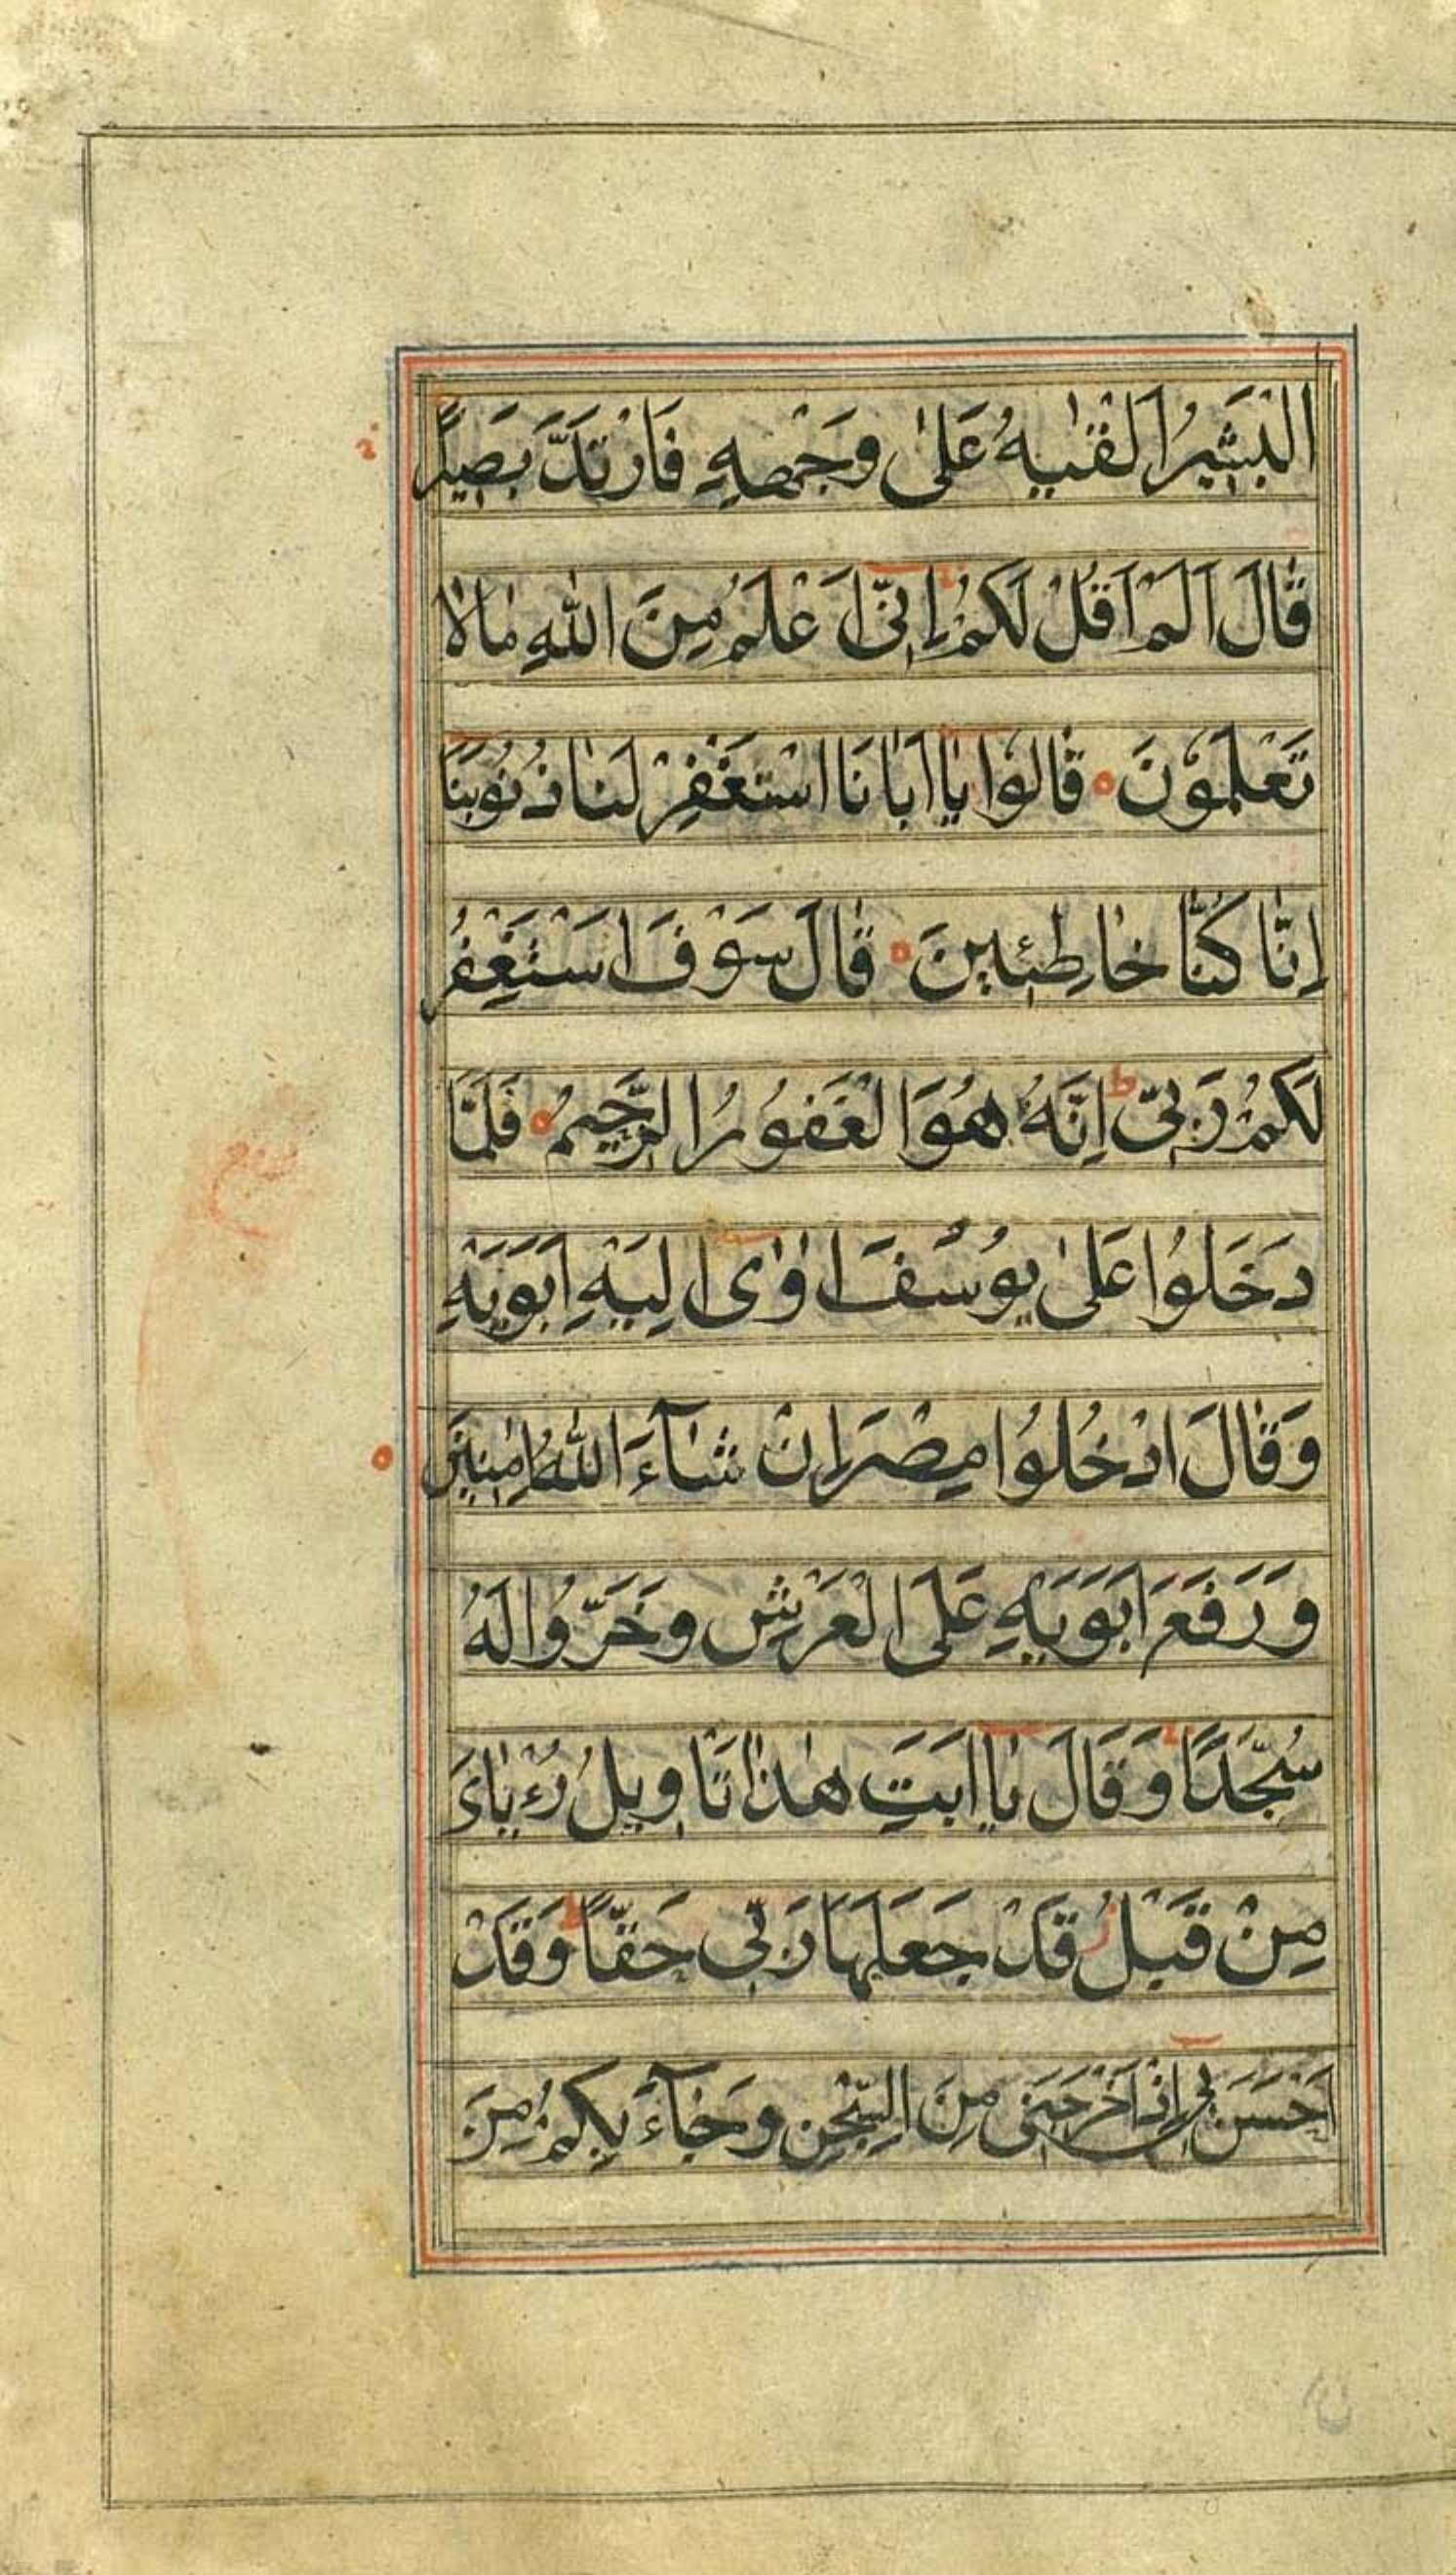 الْبَشِيرُ اَلْقٰيهُ عَلىٰ وَجْهِهِ فَارْتَدَّ بَصِيرًا
قٰالَ اَلَمْ اَقُلْ لَكُمْ اِنّٖى اَعْلَمُ مِنَ اللّٰهِ مٰا لاٰ
تَعْلَمُونَ قٰالُوا يٰا اَبٰانَا اسْتَغْفِرْ لَنٰا ذُنُوبَنٰا
اِنّٰا كُنّٰا خٰاطِئِينَ قٰالَ سَوْفَ اَسْتَغْفِرُ
لَكُمْ رَبِّى ط اِنَّهُ هُوَ الْغَفُورُ الرَّحِيمُ فَلَمّٰا
دَخَلُوا عَلىٰ يُوسُفَ اٰوٰى اِلَيْهِ اَبَوَيْهِ
وَقٰالَ ادْخُلُوا مِصْرَ اِنْ شٰآءَ اللّٰهُ اٰمِنِينَ
وَرَفَعَ اَبَوَيْهِ عَلَى الْعَرْشِ وَخَرُّوا لَهُ
سُجَّدًا وَقَالَ يٰا اَبَتِ هٰذٰا تَاْوِيلُ رُءْيٰاىَ
مِنْ قَبْلُ قَدْ جَعَلَهٰا رَبِّى حَقًّا ط وَقَدْ
اَحْسَنَ بِى اِذْ اَخْرَجَنِى مِنَ السِّجْنِ وَجٰآءَ بِكُمْ مِنَ